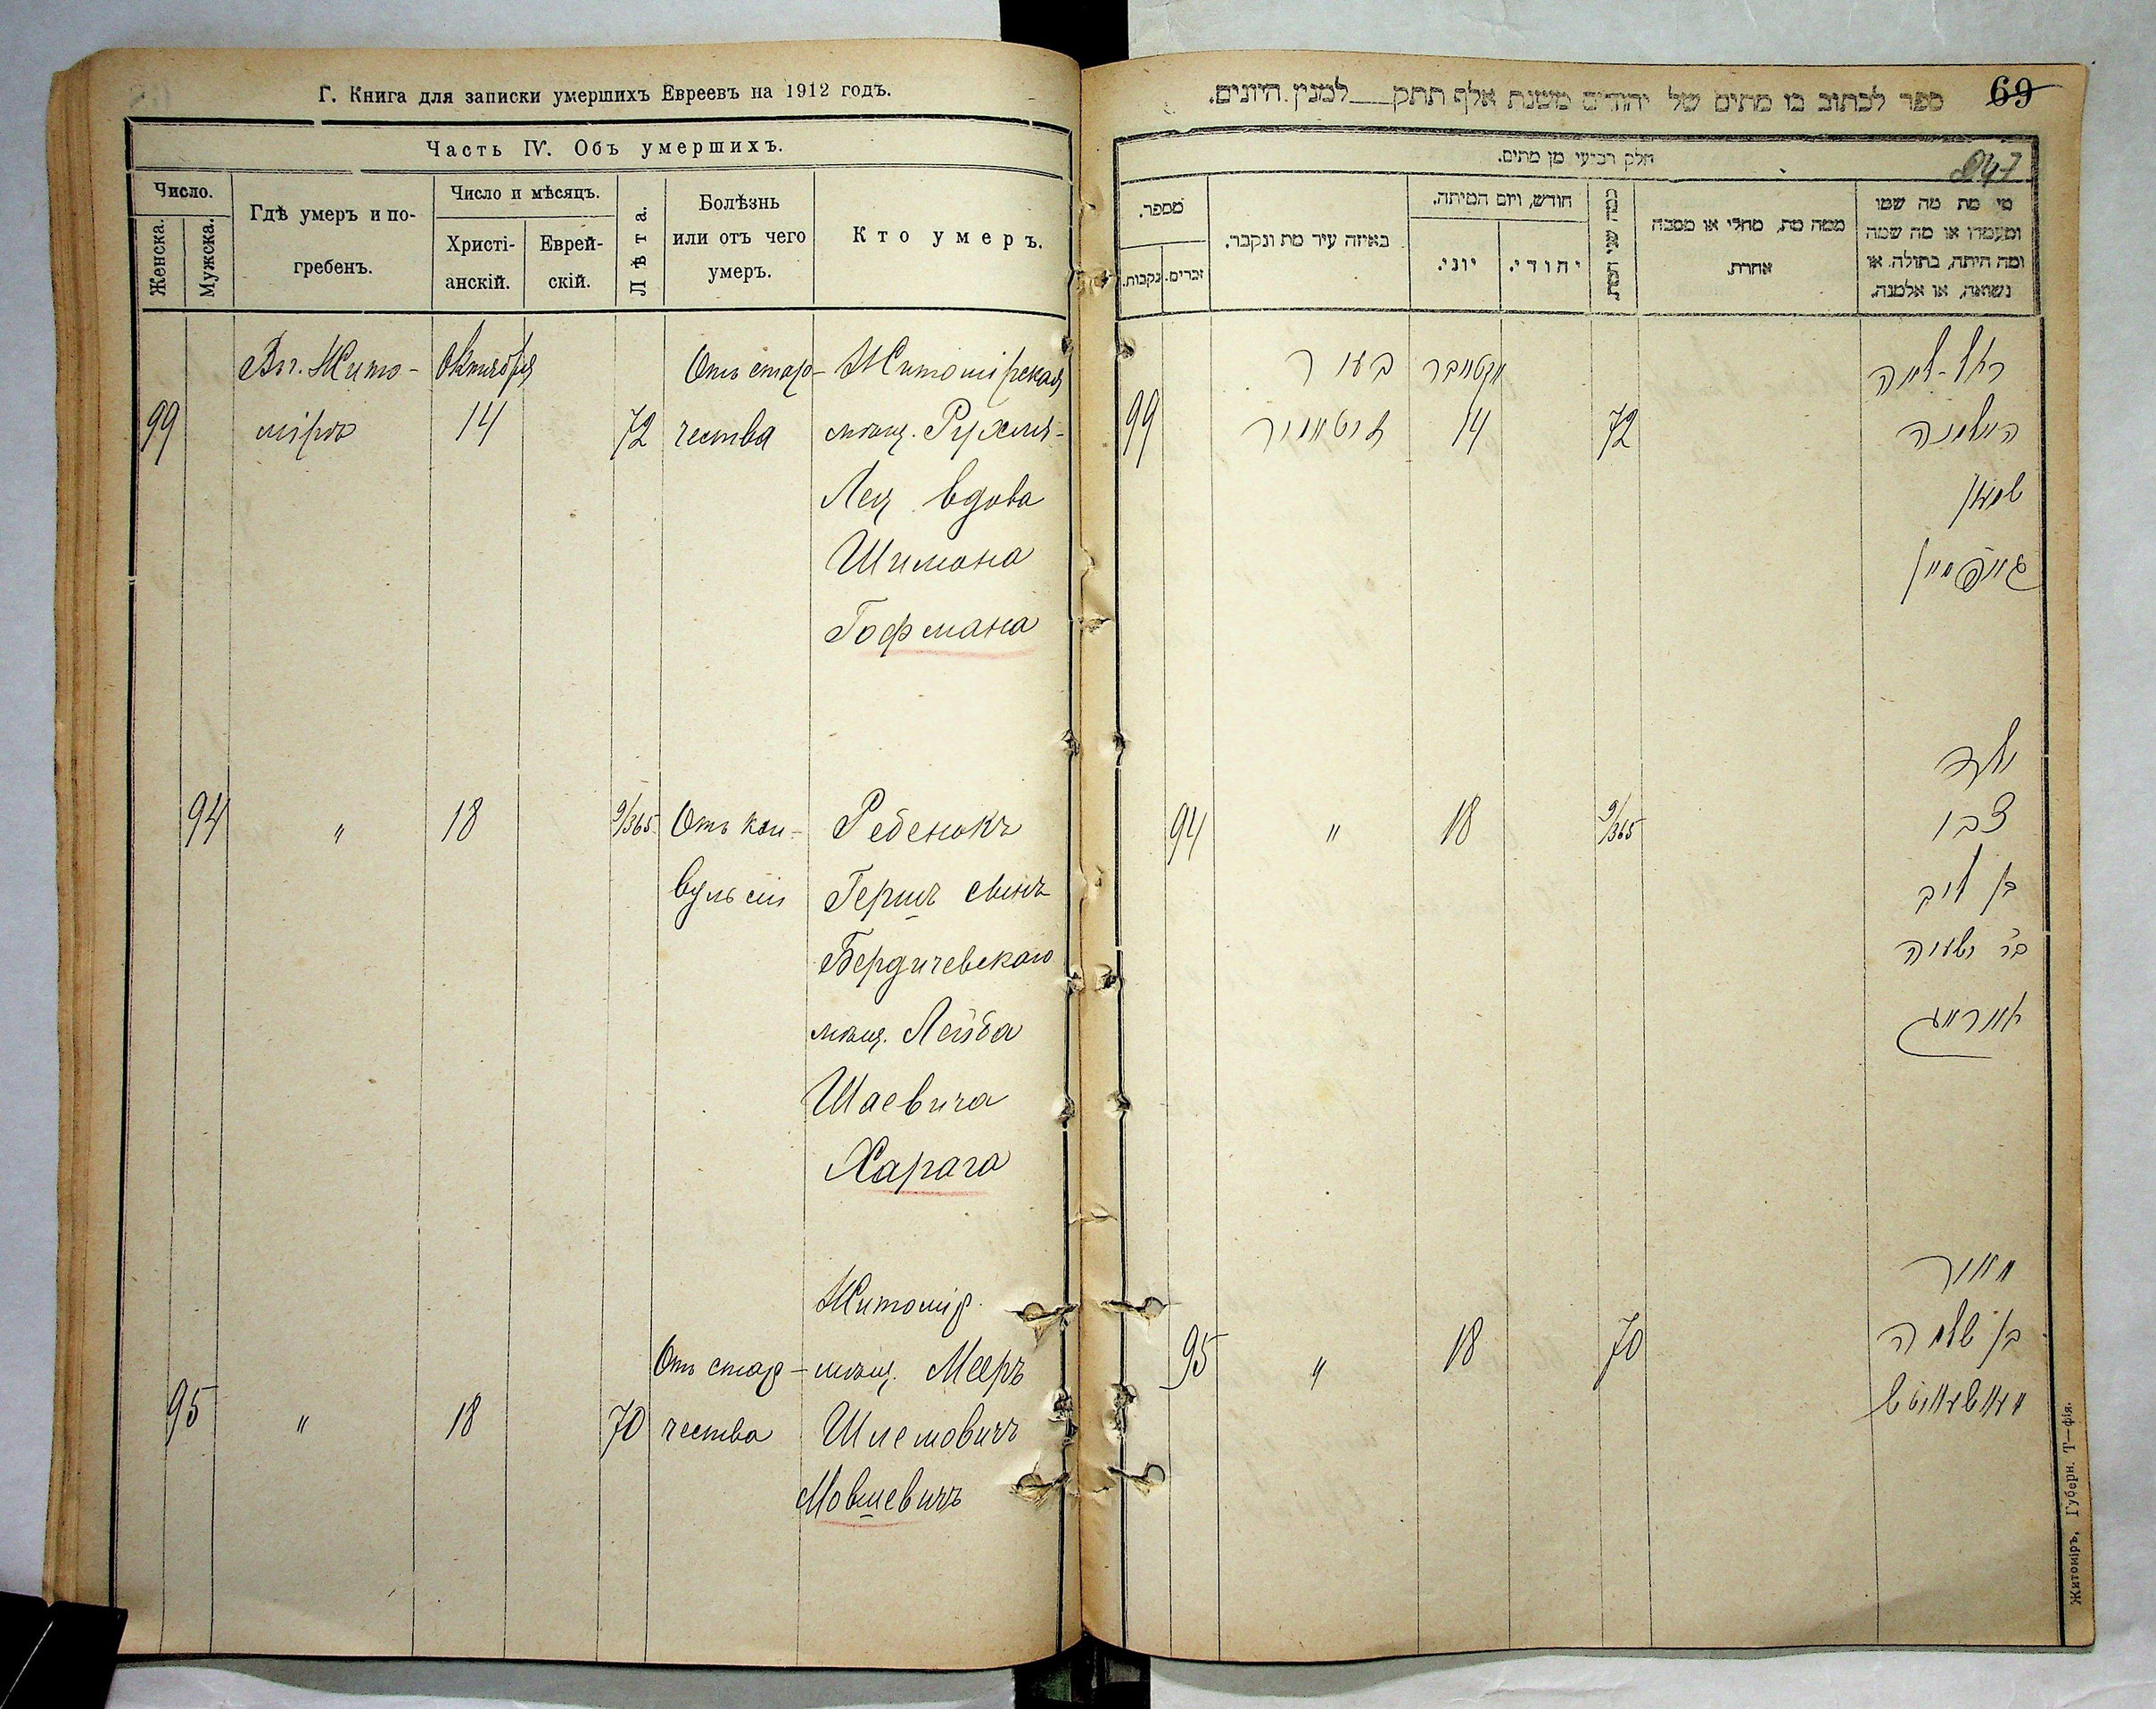 Г. Книга для записки умершихъ Евреевъ на 1912 годъ.
Часть IV. Объ умершихъ.
Число.
Женска.
Мужска.
Гдѣ умеръ и по-
гребенъ.
Число и мѣсяцъ.
Христі-
анскій.
Еврей-
скій.
Лѣта.
Болѣзнь
или отъ чего
умеръ.
Кто умеръ.
Въ г. Жито- Октября Отъ стар- Житомірская
99 мірѣ 14 72 чества мѣщ. Рухля-
Лея вдова
Шимона
Гофмана
94 " 18 9/365 Отъ кон- Ребенокъ
вульсіи Гершъ сынъ
Бердичевскаго
мѣщ. Лейба
Шаевича
Харага
Житомір.
Отъ стар- мѣщ. Мееръ
95 " 18 70 чества Шлемовичъ
Мовшевичъ
ספר לכתוב בו מתים של יהודים משנת אלף תתק למנין היונים.
69
חלק רביעי מן מתים.
247
מספר.
נקבות.
זכרים.
באיזה עיר מת ונקבר.
חודש, ויום המיתה.
יוני.
יהודי.
כמה שני המת.
ממה מת, מחלי או מסבה
אחרת.
מי מת מה שמו
ומעמדו או מה שמה
ומה היתה, בתולה או
נשואה, או אלמנה.
בעיר אקטיאבר רחל-לאה
99 זיטאמיר 14 72 האלמנה
שמעון
גאפמאן
ילד
94 " 18 9/365 צבי
בן ליב
בר ישעיה
מאיר
95 " 18 70 בן שלמה
Житоміръ, Губерн. Т—фія.